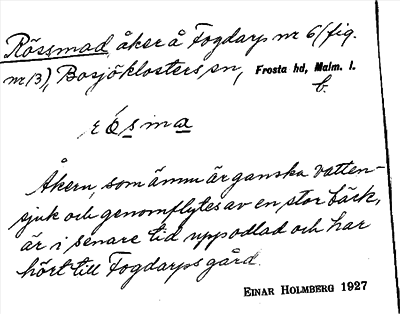 Rössmad, åker å Fogdarp nr 6 (fig.
nr 13), Bosjöklosters sn, Frosta hd, Malm. l.
b.
rösma
Åkern, som ännu är ganska vatten-
sjuk och genomflytes av en stor bäck,
är i senare tid uppodlad och har
hört till Fogdarps gård.
EINAR HOLMBERG 1927